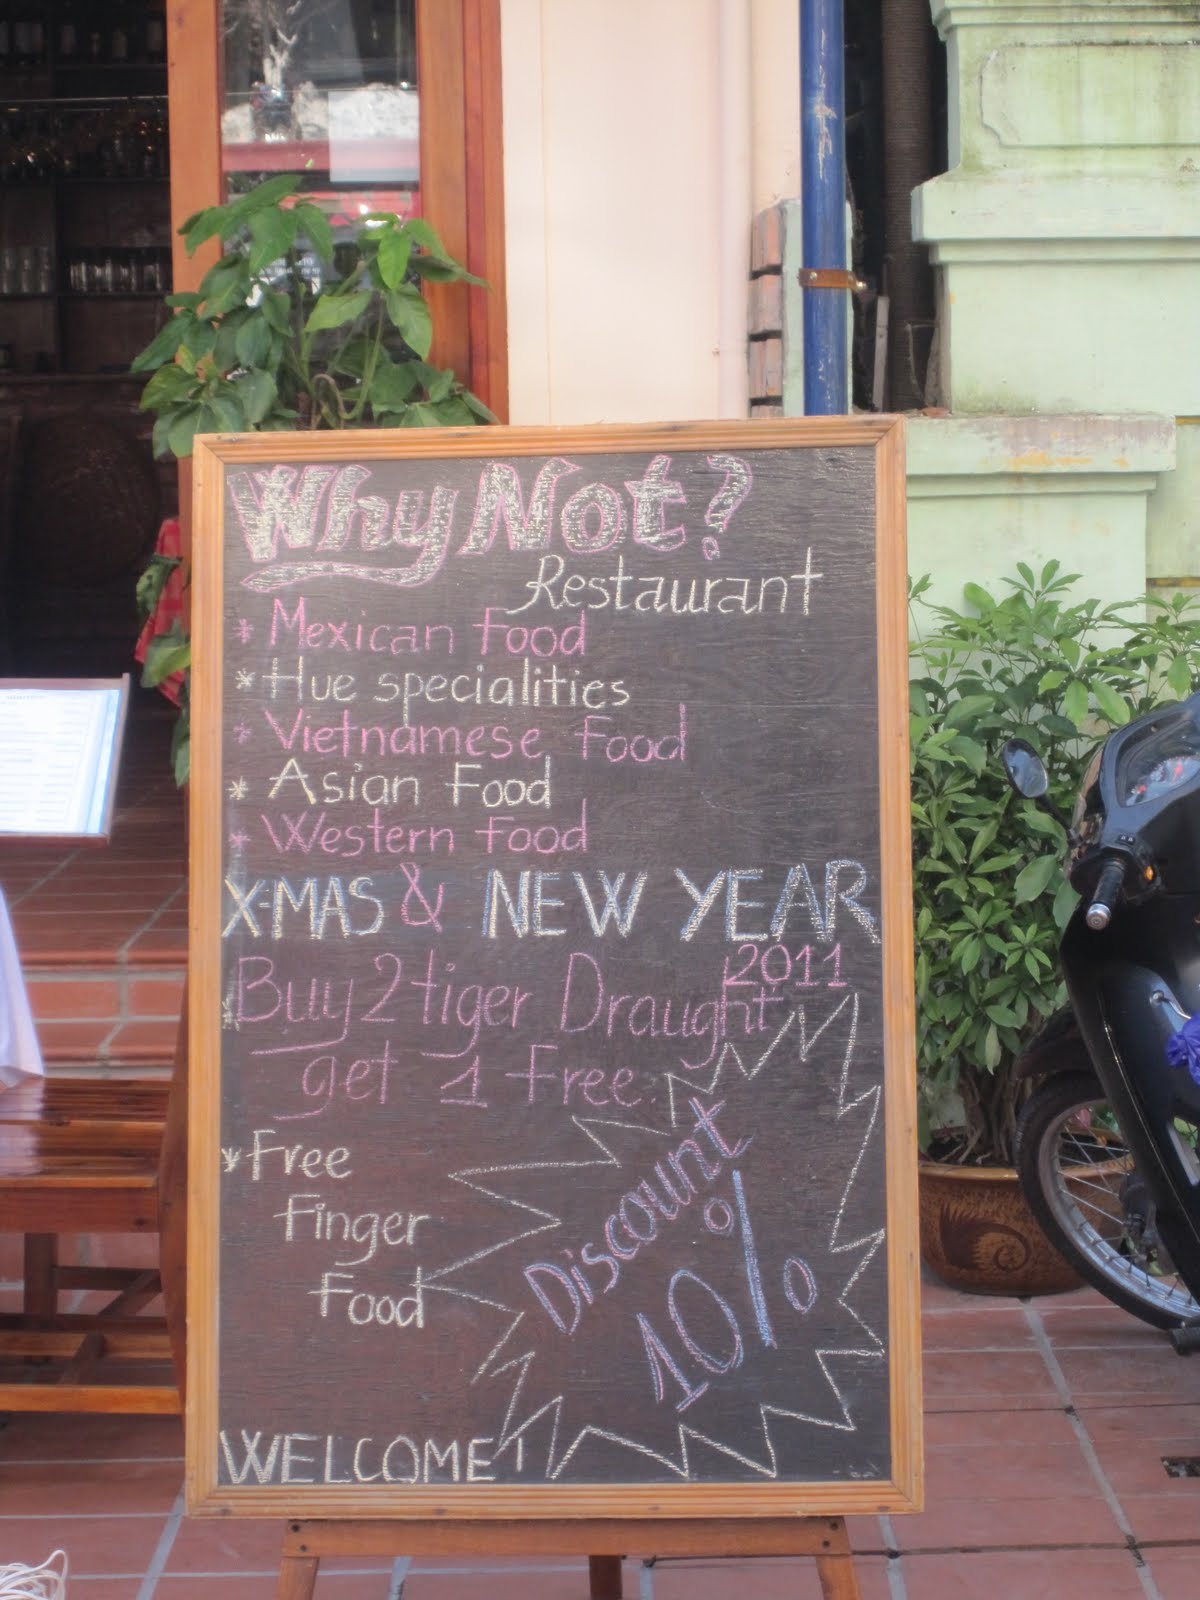 Why Not?
Restaurant
* Mexican Food
* Hue specialities
* Vietnamese Food
* Asian Food
* Western Food
X-MAS & NEW YEAR
2011
* Buy 2 tiger Draught
get 1 Free.
* Free
Finger
Food
Discount
10%
WELCOME!